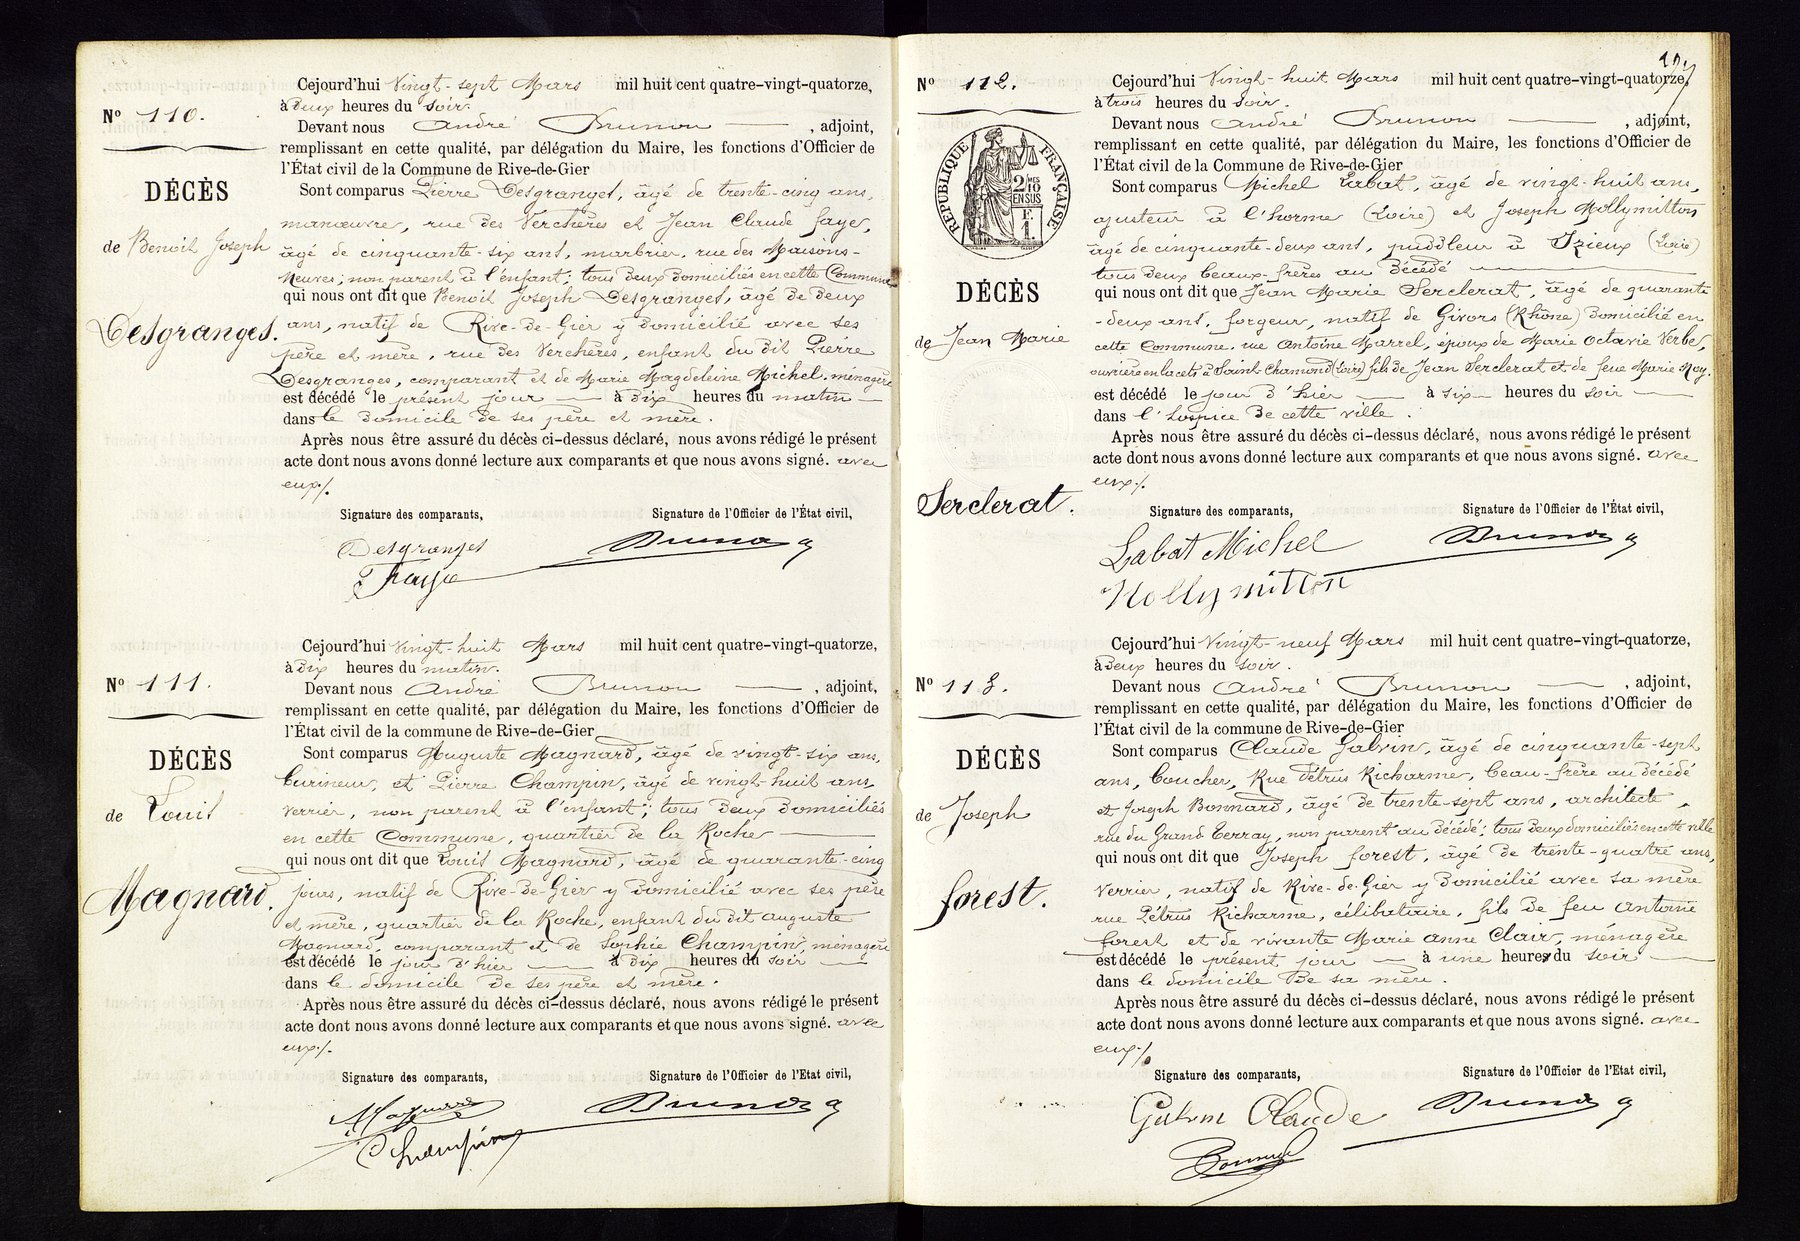 Nº 110.
DÉCÈS
de Benoit Joseph
Desgranges.
Cejourd'hui Vingt-sept Mars mil huit cent quatre-vingt-quatorze,
à Deux heures du Soir.
Devant nous André Brunon , adjoint,
remplissant en cette qualité, par délégation du Maire, les fonctions d'Officier de
l'État civil de la Commune de Rive-de-Gier
Sont comparus Pierre Desgranges, âgé de trente-cinq ans,
manœuvre, rue des Verchères et Jean Claude Faye,
âgé de cinquante-six ans, marbrier, rue des Maisons-
Neuves; non parent à l'enfant; tous deux domiciliés en cette Commune
qui nous ont dit que Benoit Joseph Desgranges, âgé de deux
ans, natif de Rive-de-Gier y domicilié avec ses
père et mère, rue des Verchères, enfant du dit Pierre
Desgranges, comparant et de Marie Magdeleine Michel, ménagère
est décédé le présent jour à Dix heures du matin
dans le domicile de ses père et mère.
Après nous être assuré du décès ci-dessus déclaré, nous avons rédigé le présent
acte dont nous avons donné lecture aux comparants et que nous avons signé. avec
eux./.
Signature des comparants, Signature de l'Officier de l'État civil,
Desgranges Brunon a
Faye
Nº 111.
DÉCÈS
de Louis
Magnard.
Cejourd'hui Vingt-huit Mars mil huit cent quatre-vingt-quatorze,
à Dix heures du matin.
Devant nous André Brunon , adjoint,
remplissant en cette qualité, par délégation du Maire, les fonctions d'Officier de
l'État civil de la commune de Rive-de-Gier
Sont comparus Auguste Magnard, âgé de vingt-six ans,
burineur, et Pierre Champin, âgé de vingt-huit ans,
verrier, non parent à l'enfant; tous deux domiciliés
en cette Commune, quartier de la Roche
qui nous ont dit que Louis Magnard, âgé de quarante-cinq
jours, natif de Rive-de-Gier y domicilié avec ses père
et mère, quartier de la Roche, enfant du dit Auguste
Magnard, comparant et de Sophie Champin, ménagère
est décédé le jour d'hier à Dix heures du soir
dans le domicile de ses père et mère.
Après nous être assuré du décès ci-dessus déclaré, nous avons rédigé le présent
acte dont nous avons donné lecture aux comparants et que nous avons signé. avec
eux./.
Signature des comparants, Signature de l'Officier de l'Etat civil,
Magnard Brunon a
Champin
Nº 112.
RÉPUBLIQUE FRANÇAISE
2/10MES
EN SUS
F.
1.
DÉCÈS
de Jean Marie
Serclerat.
Cejourd'hui Vingt-huit Mars mil huit cent quatre-vingt-quatorze,
à trois heures du Soir.
Devant nous André Brunon , adjoint,
remplissant en cette qualité, par délégation du Maire, les fonctions d'Officier de
l'État civil de la Commune de Rive-de-Gier
Sont comparus Michel Labat, âgé de vingt-huit ans,
ajusteur à l'horme (Loire) et Joseph Mollymitton
âgé de cinquante-deux ans, puddleur à Izieux (Loire)
tous deux beaux-frères au décédé
qui nous ont dit que Jean Marie Serclerat, âgé de quarante
-deux ans, forgeur, natif de Givors (Rhône) domicilié en
cette Commune, rue Antoine Marrel, époux de Marie Octavie Verbe,
ouvrière en lacets à Saint Chamond (Loire) fils de Jean Serclerat et de feue Marie Moy.
est décédé le jour d'hier à six heures du soir
dans l'hospice de cette ville.
Après nous être assuré du décès ci-dessus déclaré, nous avons rédigé le présent
acte dont nous avons donné lecture aux comparants et que nous avons signé. avec
eux./.
Signature des comparants, Signature de l'Officier de l'État civil,
Labat Michel Brunon a
Mollymitton
Nº 113.
DÉCÈS
de Joseph
forest.
Cejourd'hui Vingt-neuf Mars mil huit cent quatre-vingt-quatorze,
à Deux heures du Soir.
Devant nous André Brunon , adjoint,
remplissant en cette qualité, par délégation du Maire, les fonctions d'Officier de
l'État civil de la commune de Rive-de-Gier
Sont comparus Claude Galvin, âgé de cinquante-sept
ans, boucher, Rue Pétrus Richarme, beau-frère au décédé
et Joseph Bonnard, âgé de trente-sept ans, architecte,
rue du Grand Terray, non parent au décédé; tous deux domiciliés en cette ville
qui nous ont dit que Joseph forest, âgé de trente-quatre ans,
verrier, natif de Rive-de-Gier y domicilié avec sa mère
rue Pétrus Richarme, célibataire, fils de feu Antoine
forest et de vivante Marie Anne Clair, ménagère
est décédé le présent jour à une heures du soir
dans le domicile de sa mère.
Après nous être assuré du décès ci-dessus déclaré, nous avons rédigé le présent
acte dont nous avons donné lecture aux comparants et que nous avons signé. avec
eux./.
Signature des comparants, Signature de l'Officier de l'Etat civil,
Claude Brunon a
Bonnard